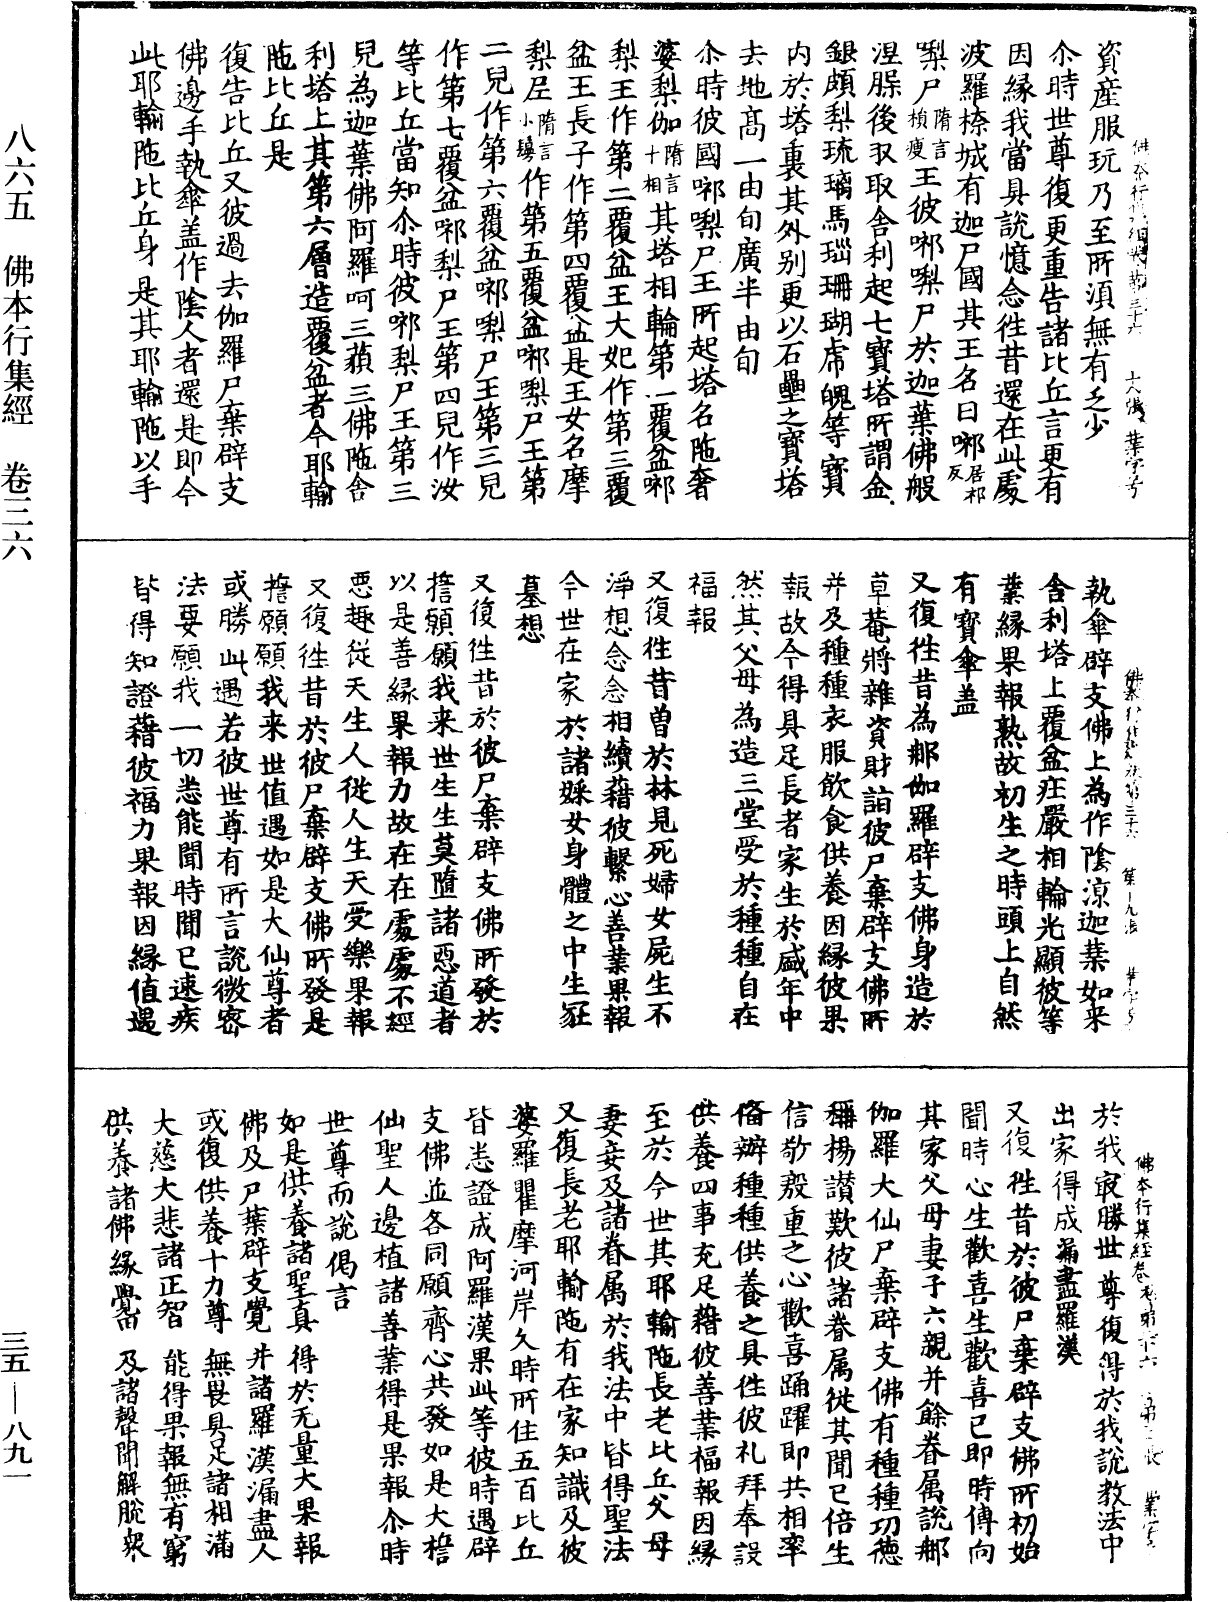 資産服玩乃至所須無有乏少
尒時世尊復更重告諸比丘言更有
因縁我當具說憶念徃昔還在此處
波羅㮈城有迦尸國其王名曰㖠居祁反
㖠尸隋言㾪瘦王彼㖠㖠尸於迦葉佛般
涅槃後収取舎利起七寶塔所謂金
銀頗梨琉璃馬瑙珊瑚虎魄等寶
内於塔裏其外别更以石壘之寶塔
去地髙一由旬廣半由旬
尒時彼國㖠㖠尸王所起塔名陁奢
婆梨伽隋言十相其塔相輪第一覆盆㖠
梨王作第二覆盆王大妃作第三覆
盆王長子作第四覆盆是王女名摩
梨尼隋言小鬘作第五覆盆㖠㖠尸王第
二兒作第六覆盆㖠㖠尸王第三兒
作第七覆盆㖠梨尸王第四兒作汝
等比丘當知尒時彼㖠梨尸王第三
兒為迦葉佛阿羅呵三藐三佛陁舎
利塔上其第六層造覆盆者今耶輸
陁比丘是
復告比丘又彼過去伽羅尸棄辟支
佛邊手執傘盖作隂人者還是即今
此耶輸陁比丘身是其耶輸陁以手
執傘辟支佛上為作隂涼迦葉如来
舎利塔上覆盆庄嚴相輪光顯彼等
業縁果報熟故初生之時頭上自然
有寶傘盖
又復徃昔為那伽羅辟支佛身造於
草菴將雜資財詣彼尸棄辟支佛所
并及種種衣服飲食供養因縁彼果
報故今得具足長者家生於盛年中
然其父母為造三堂受於種種自在
福報
又復徃昔曽於林見死婦女屍生不
淨想念念相續藉彼繫心善業果報
今世在家於諸婇女身體之中生冢
墓想
又復徃昔於彼尸棄辟支佛所發於
擔願願我来世生生莫墮諸惡道者
以是善縁果報力故在在處處不經
惡趣從天生人從人生天受樂果報
又復徃昔於彼尸棄辟支佛所發是
擔願願我来世值遇如是大仙尊者
或勝此遇若彼世尊有所言說微密
法要願我一切悉能聞時聞已速疾
皆得知證藉彼福力果報因縁值遇
於我㝡勝世尊復得於我說教法中
出家得成漏盡羅漢
又復徃昔於彼尸棄辟支佛所初始
聞時心生歡喜生歡喜已即時傳向
其家父母妻子六親并餘眷属說那
伽羅大仙尸棄辟支佛有種種功德
稱揚讃歎彼諸眷属從其聞已倍生
信敬殷重之心歡喜踊躍即共相率
俻辦種種供養之具徃彼礼拜奉設
供養四事充足藉彼善業福報因縁
至於今世其耶輸陁長老比丘父母
妻妾及諸眷属於我法中皆得聖法
又復長老耶輸陁有在家知識及彼
婆羅瞿摩河岸久時所住五百比丘
皆悉證成阿羅漢果此等彼時遇辟
支佛並各同願齊心共發如是大擔
仙聖人邊植諸善業得是果報尒時
世尊而說偈言
如是供養諸聖真 得於无量大果報
佛及尸葉辟支覺 并諸羅漢漏盡人
或復供養十力尊 無畏具足諸相滿
大慈大悲諸正智 能得果報無有窮
供養諸佛緣覺衆 及諸聲聞解脫衆
八六五 佛本行集經 卷三六
三五—八九一